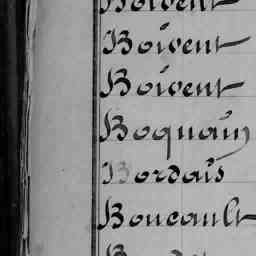 Boivent
Boivent
Boivent
Boquain
Bordais
Boucault